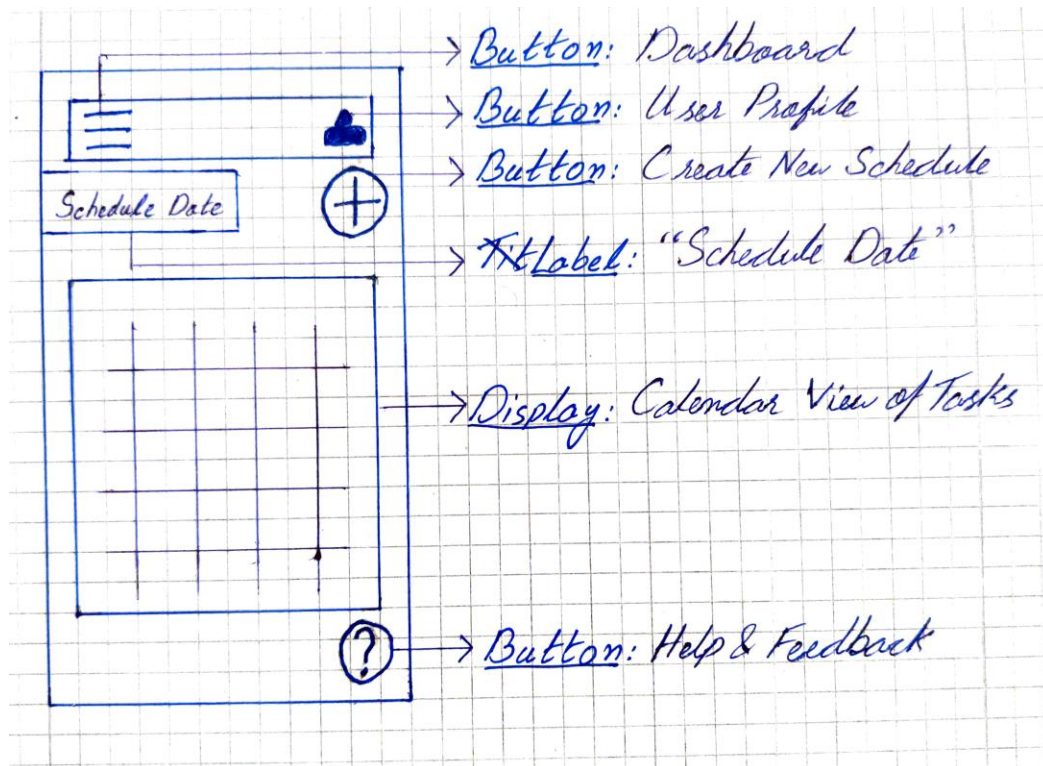 Button: Dashboard
Button: User Profile
Button: Create New Schedule
Schedule Date
Label: "Schedule Date"
Display: Calendar View of Tasks
?
Button: Help & Feedback